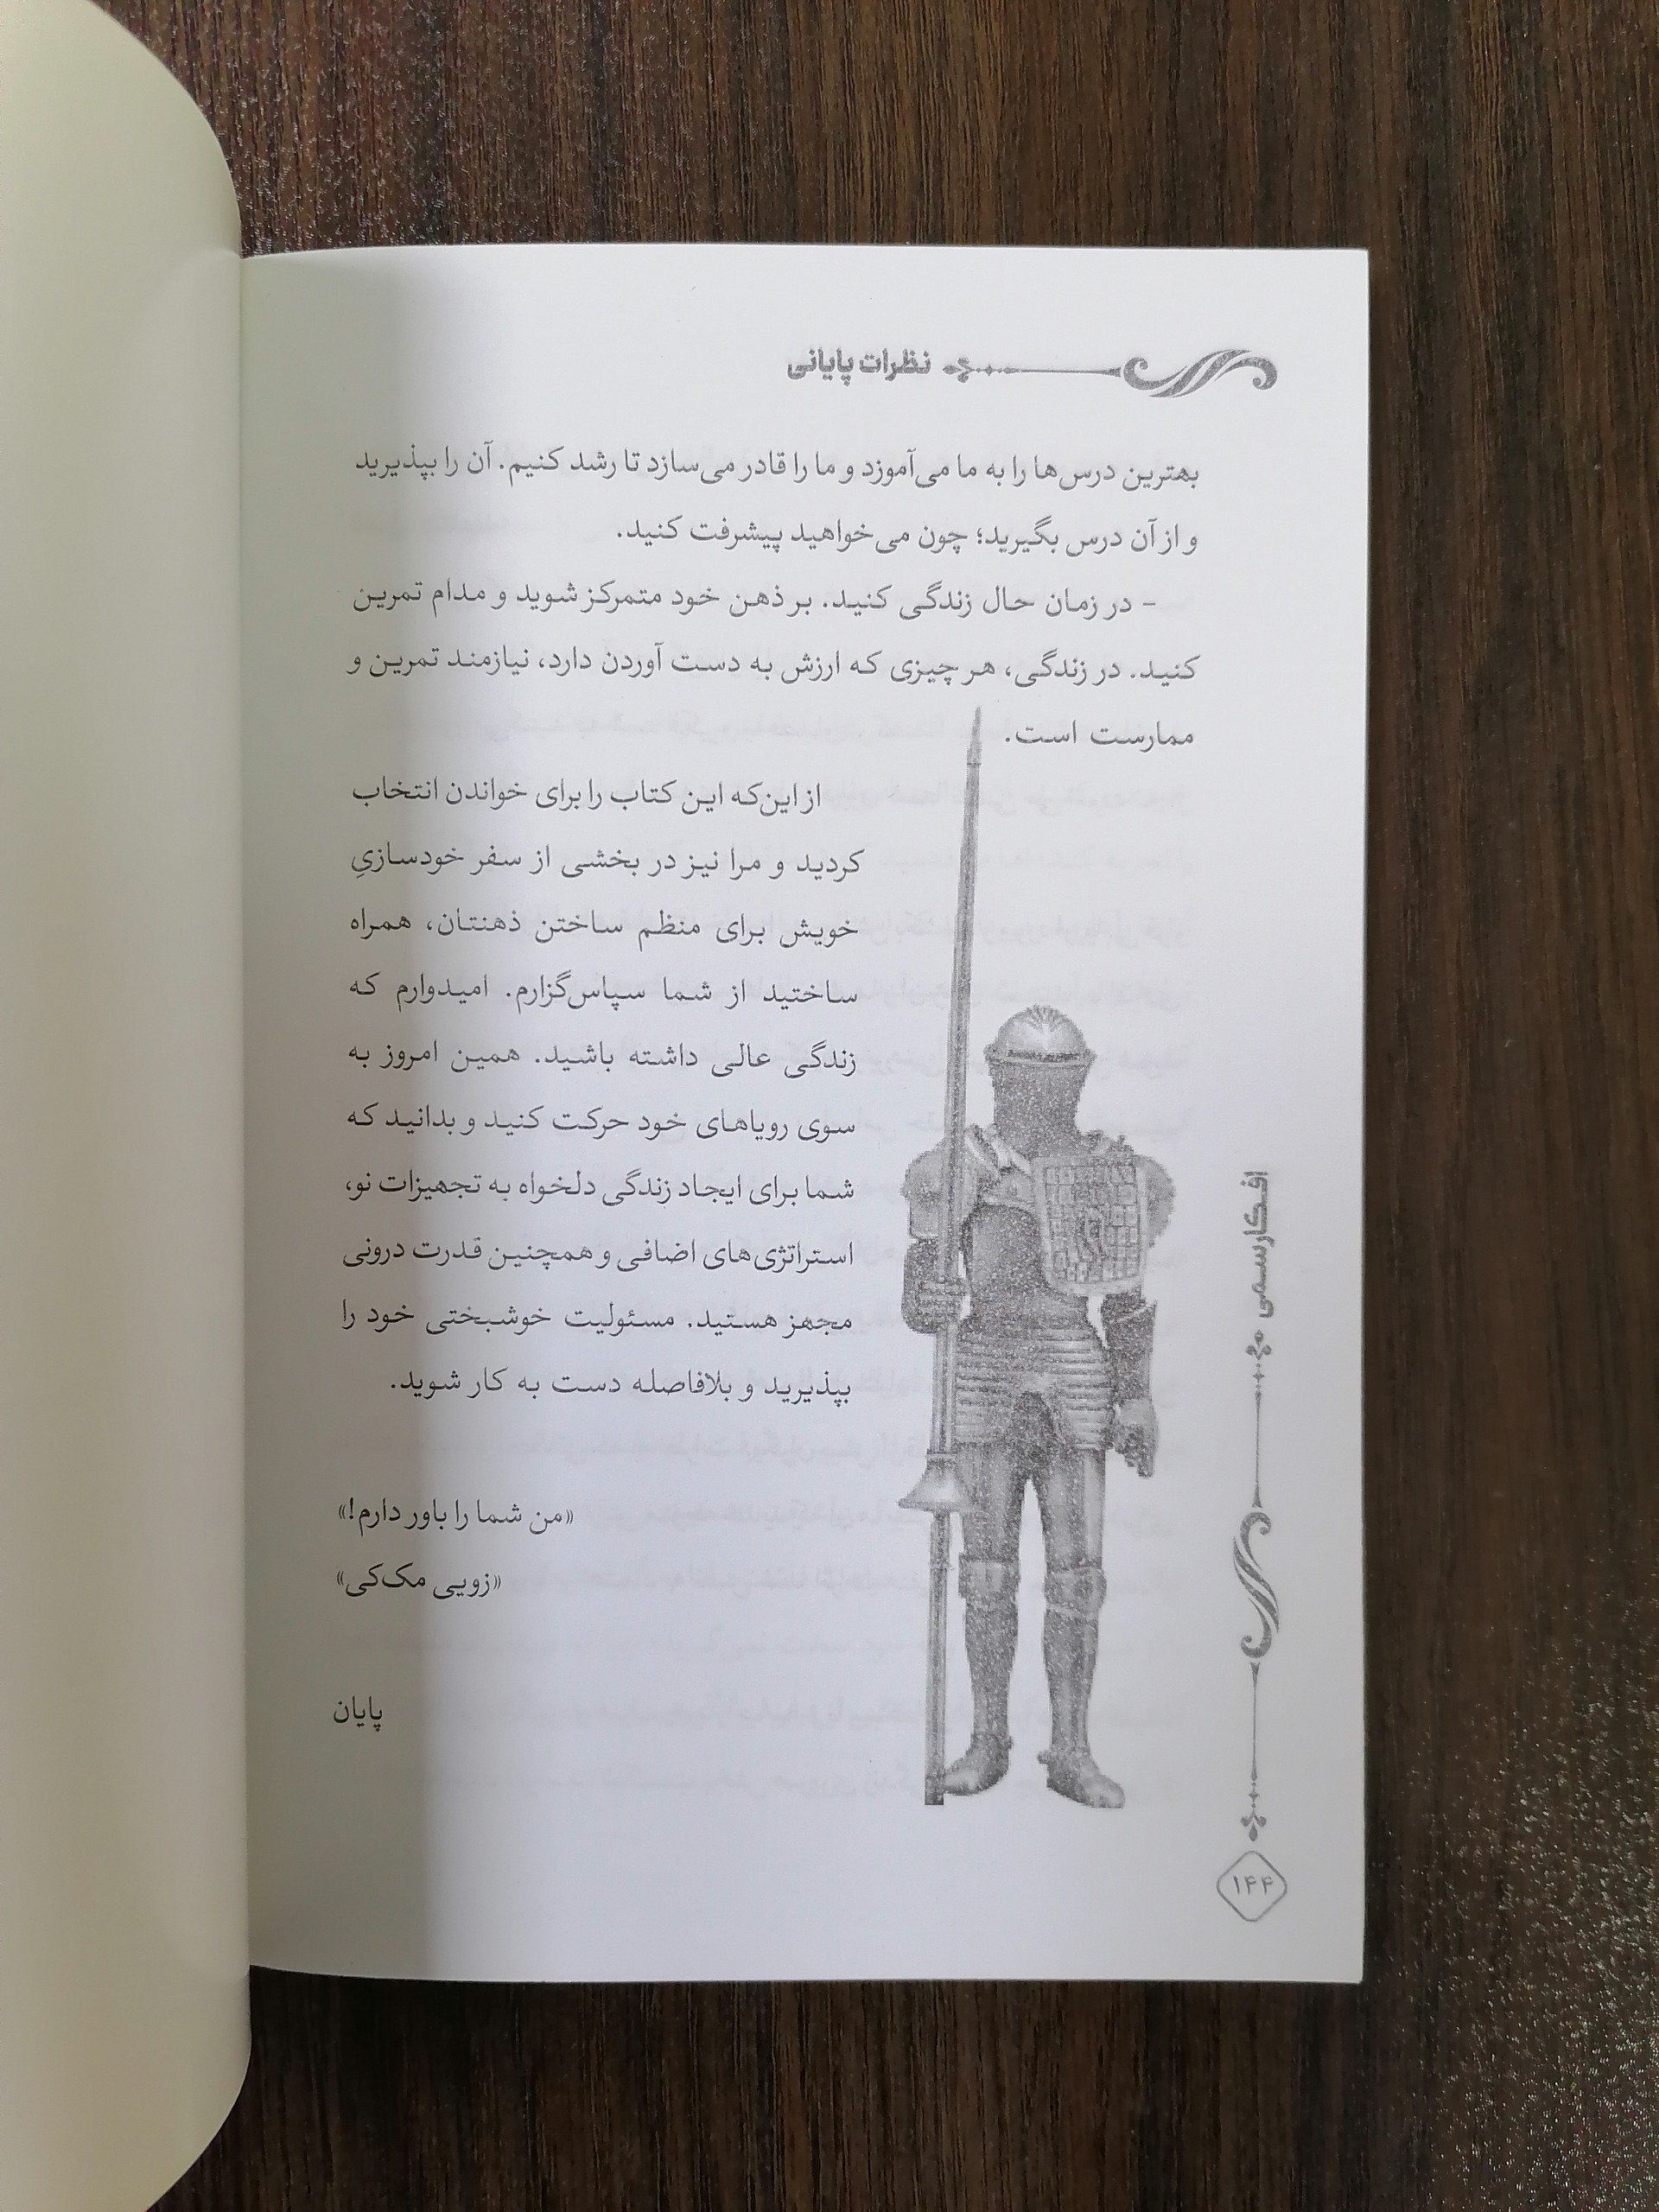 نظرات پایانی
بهترین درس‌ها را به ما می‌آموزد و ما را قادر می‌سازد تا رشد کنیم. آن را بپذیرید
و از آن درس بگیرید؛ چون می‌خواهید پیشرفت کنید.
- در زمان حال زندگی کنید. بر ذهن خود متمرکز شوید و مدام تمرین
کنید. در زندگی، هر چیزی که ارزش به دست آوردن دارد، نیازمند تمرین و
ممارست است.
از این‌که این کتاب را برای خواندن انتخاب
کردید و مرا نیز در بخشی از سفر خودسازیِ
خویش برای منظم ساختن ذهنتان، همراه
ساختید از شما سپاس‌گزارم. امیدوارم که
زندگی عالی داشته باشید. همین امروز به
سوی رویاهای خود حرکت کنید و بدانید که
شما برای ایجاد زندگی دلخواه به تجهیزات نو،
استراتژی‌های اضافی و همچنین قدرت درونی
مجهز هستید. مسئولیت خوشبختی خود را
بپذیرید و بلافاصله دست به کار شوید.
«من شما را باور دارم!»
«زویی مک‌کی»
پایان
افکار سمی
۱۴۴